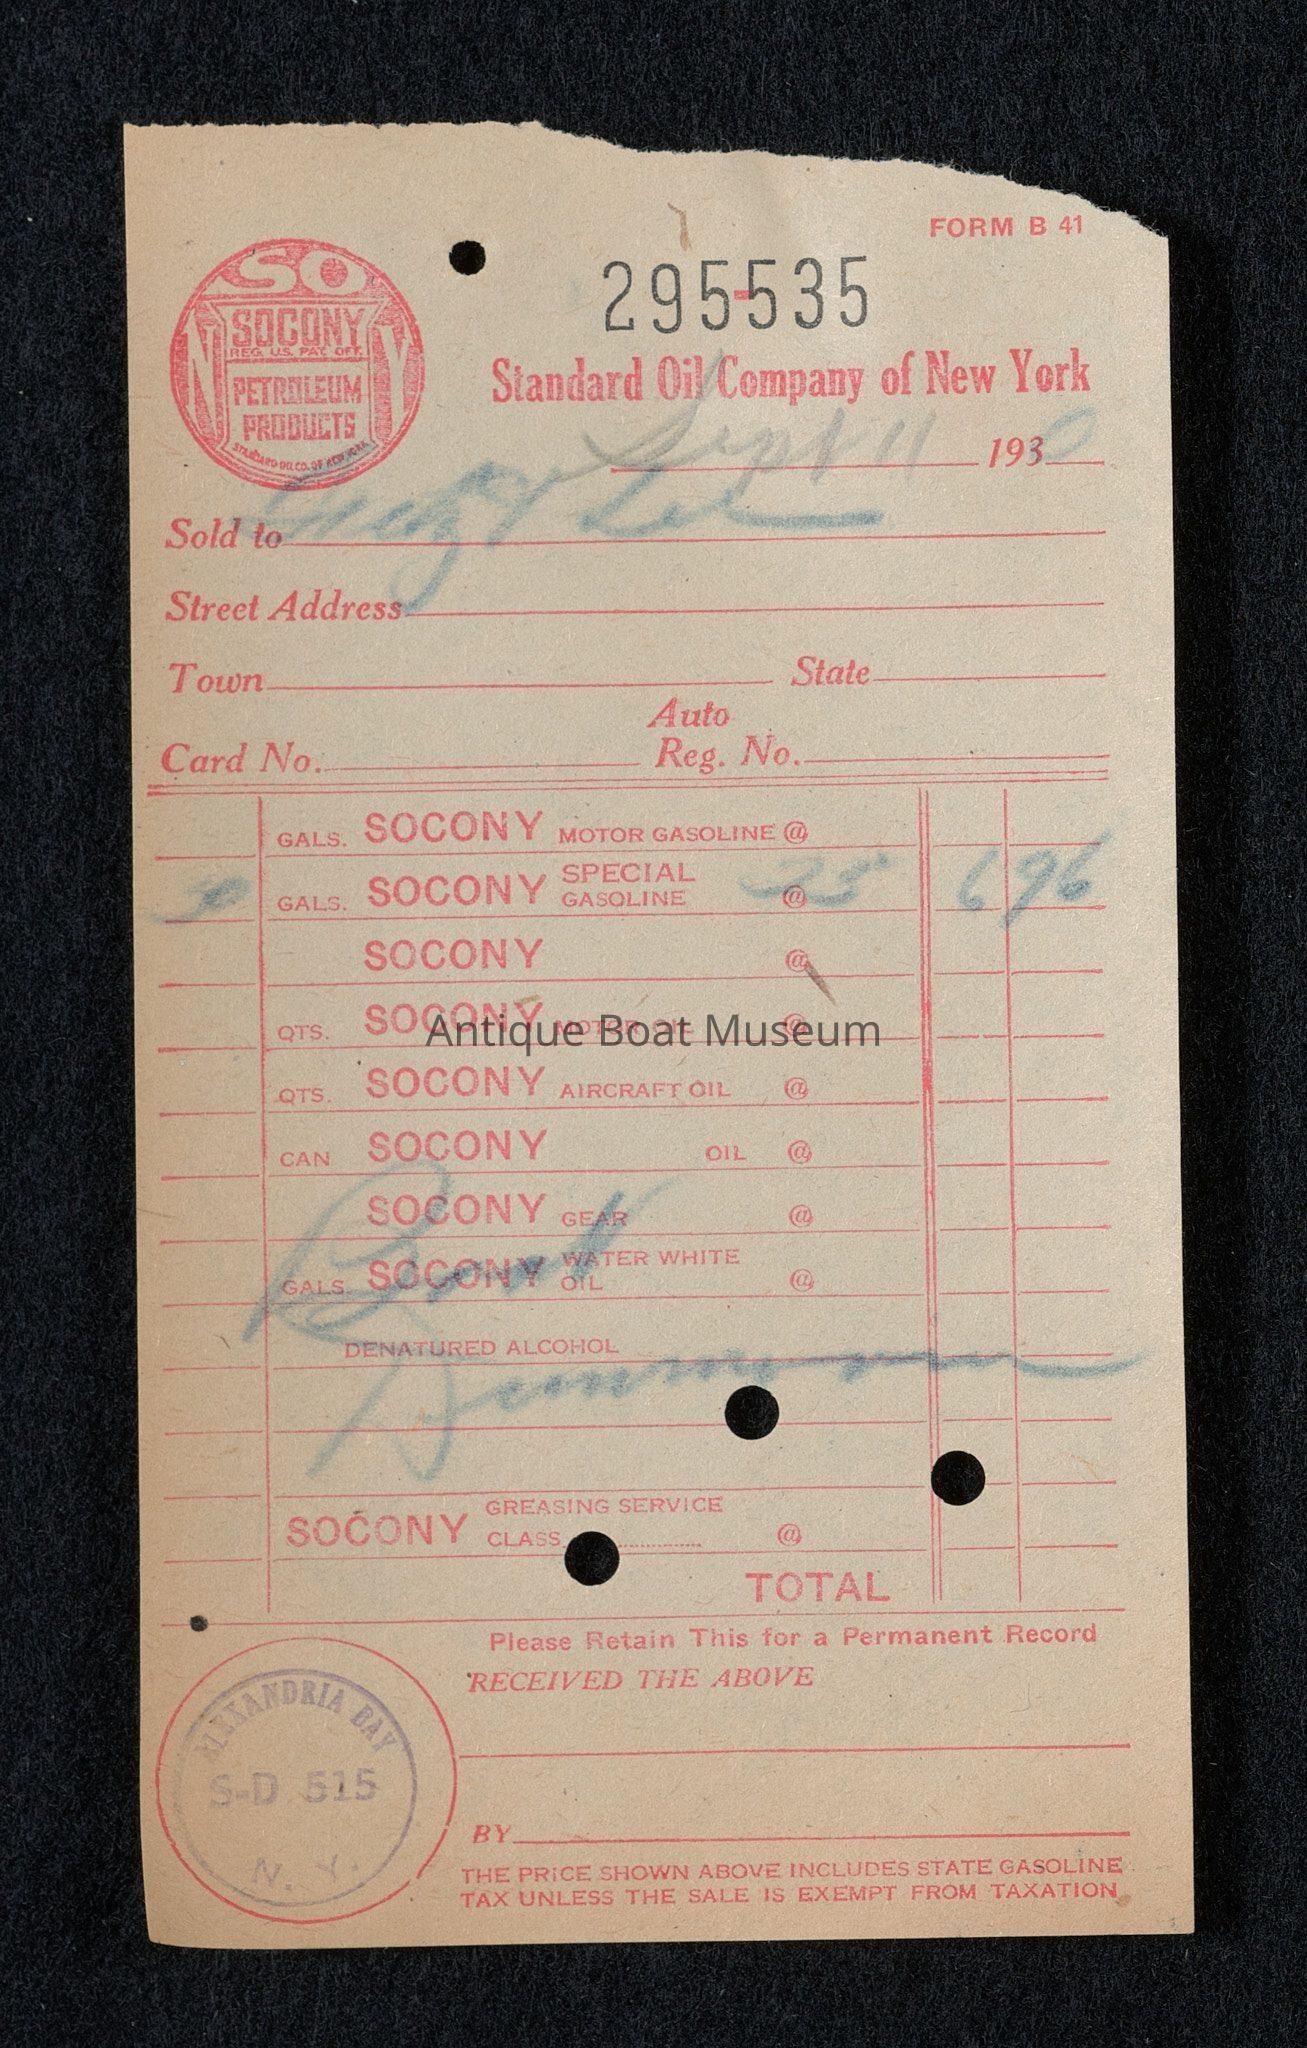 FORM B 41
SO
NY
SOCONY
REG. U.S. PAT. OFF.
PETROLEUM
PRODUCTS
STANDARD OIL CO. OF NEW YORK
295-535
Standard Oil Company of New York
Sept 11 1930
Sold to
Street Address
Town State
Auto
Card No. Reg. No.
GALS. SOCONY MOTOR GASOLINE @
GALS. SOCONY SPECIAL GASOLINE @ 23 6 96
SOCONY @
QTS. SOCONY MOTOR OIL @
Antique Boat Museum
QTS. SOCONY AIRCRAFT OIL @
CAN SOCONY OIL @
SOCONY GEAR @
GALS. SOCONY WATER WHITE OIL @
Boat
DENATURED ALCOHOL
SOCONY GREASING SERVICE
CLASS @
TOTAL
Please Retain This for a Permanent Record
RECEIVED THE ABOVE
ALEXANDRIA BAY
S-D 515
N. Y.
BY
THE PRICE SHOWN ABOVE INCLUDES STATE GASOLINE
TAX UNLESS THE SALE IS EXEMPT FROM TAXATION